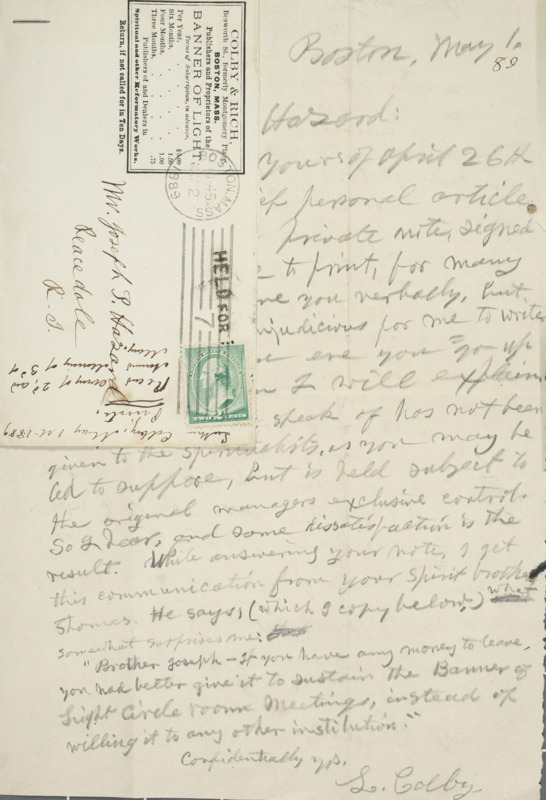 COLBY & RICH,
Bosworth St., formerly Montgomery Place,
BOSTON, MASS.
Publishers and Proprietors of the
BANNER OF LIGHT
Terms of Subscription, in advance.
Per Year, . . . $3.00
Six Months, . . . 1.50
Four Months, . . . 1.00
Three Months, . . . .75
Publishers of and Dealers in
Spiritual and other Reformatory Works.
Return, if not called for in Ten Days.
BOSTON, MASS.
1889
HELD FOR
Mr. Joseph P. Hazard
Peacedale
R. I.
Luther Colby, May 1st - 1889
Boston, May 1.
89
Hazard:
yours of April 26th
personal article
private note, signed
to print, for many
you verbally, but
injudicious for me to write
ere you "go up
I will explain
speak of has not been
given to the Spiritualists, as you may be
led to suppose, but is held subject to
the original managers exclusive control.
So I hear, and some dissatisfaction is the
result. While answering your note, I get
this communication from your spirit brother
Thomas. He says, (which I copy below,) what
somewhat surprises me:
"Brother Joseph - If you have any money to leave,
you had better give it to sustain the Banner of
Light Circle room Meetings, instead of
willing it to any other institution."
Confidentially yrs,
L. Colby